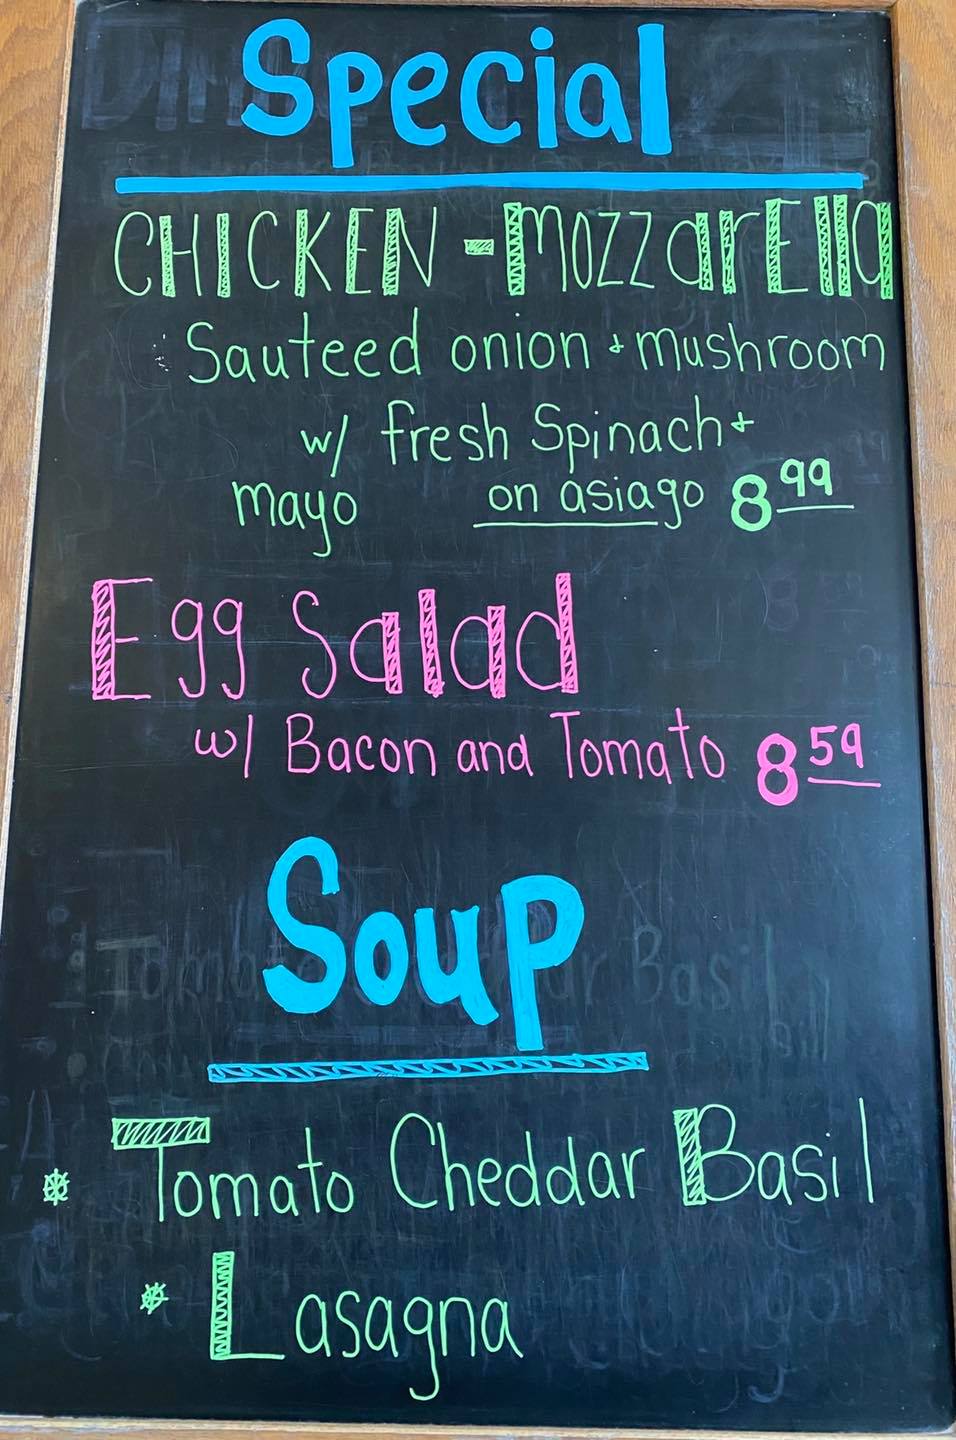 Special
CHICKEN - MozzarElla
Sauteed onion + mushroom
w/ fresh Spinach +
mayo on asiago 8 99
Egg Salad
w/ Bacon and Tomato 8 59
Soup
Tomato Cheddar Basil
Lasagna